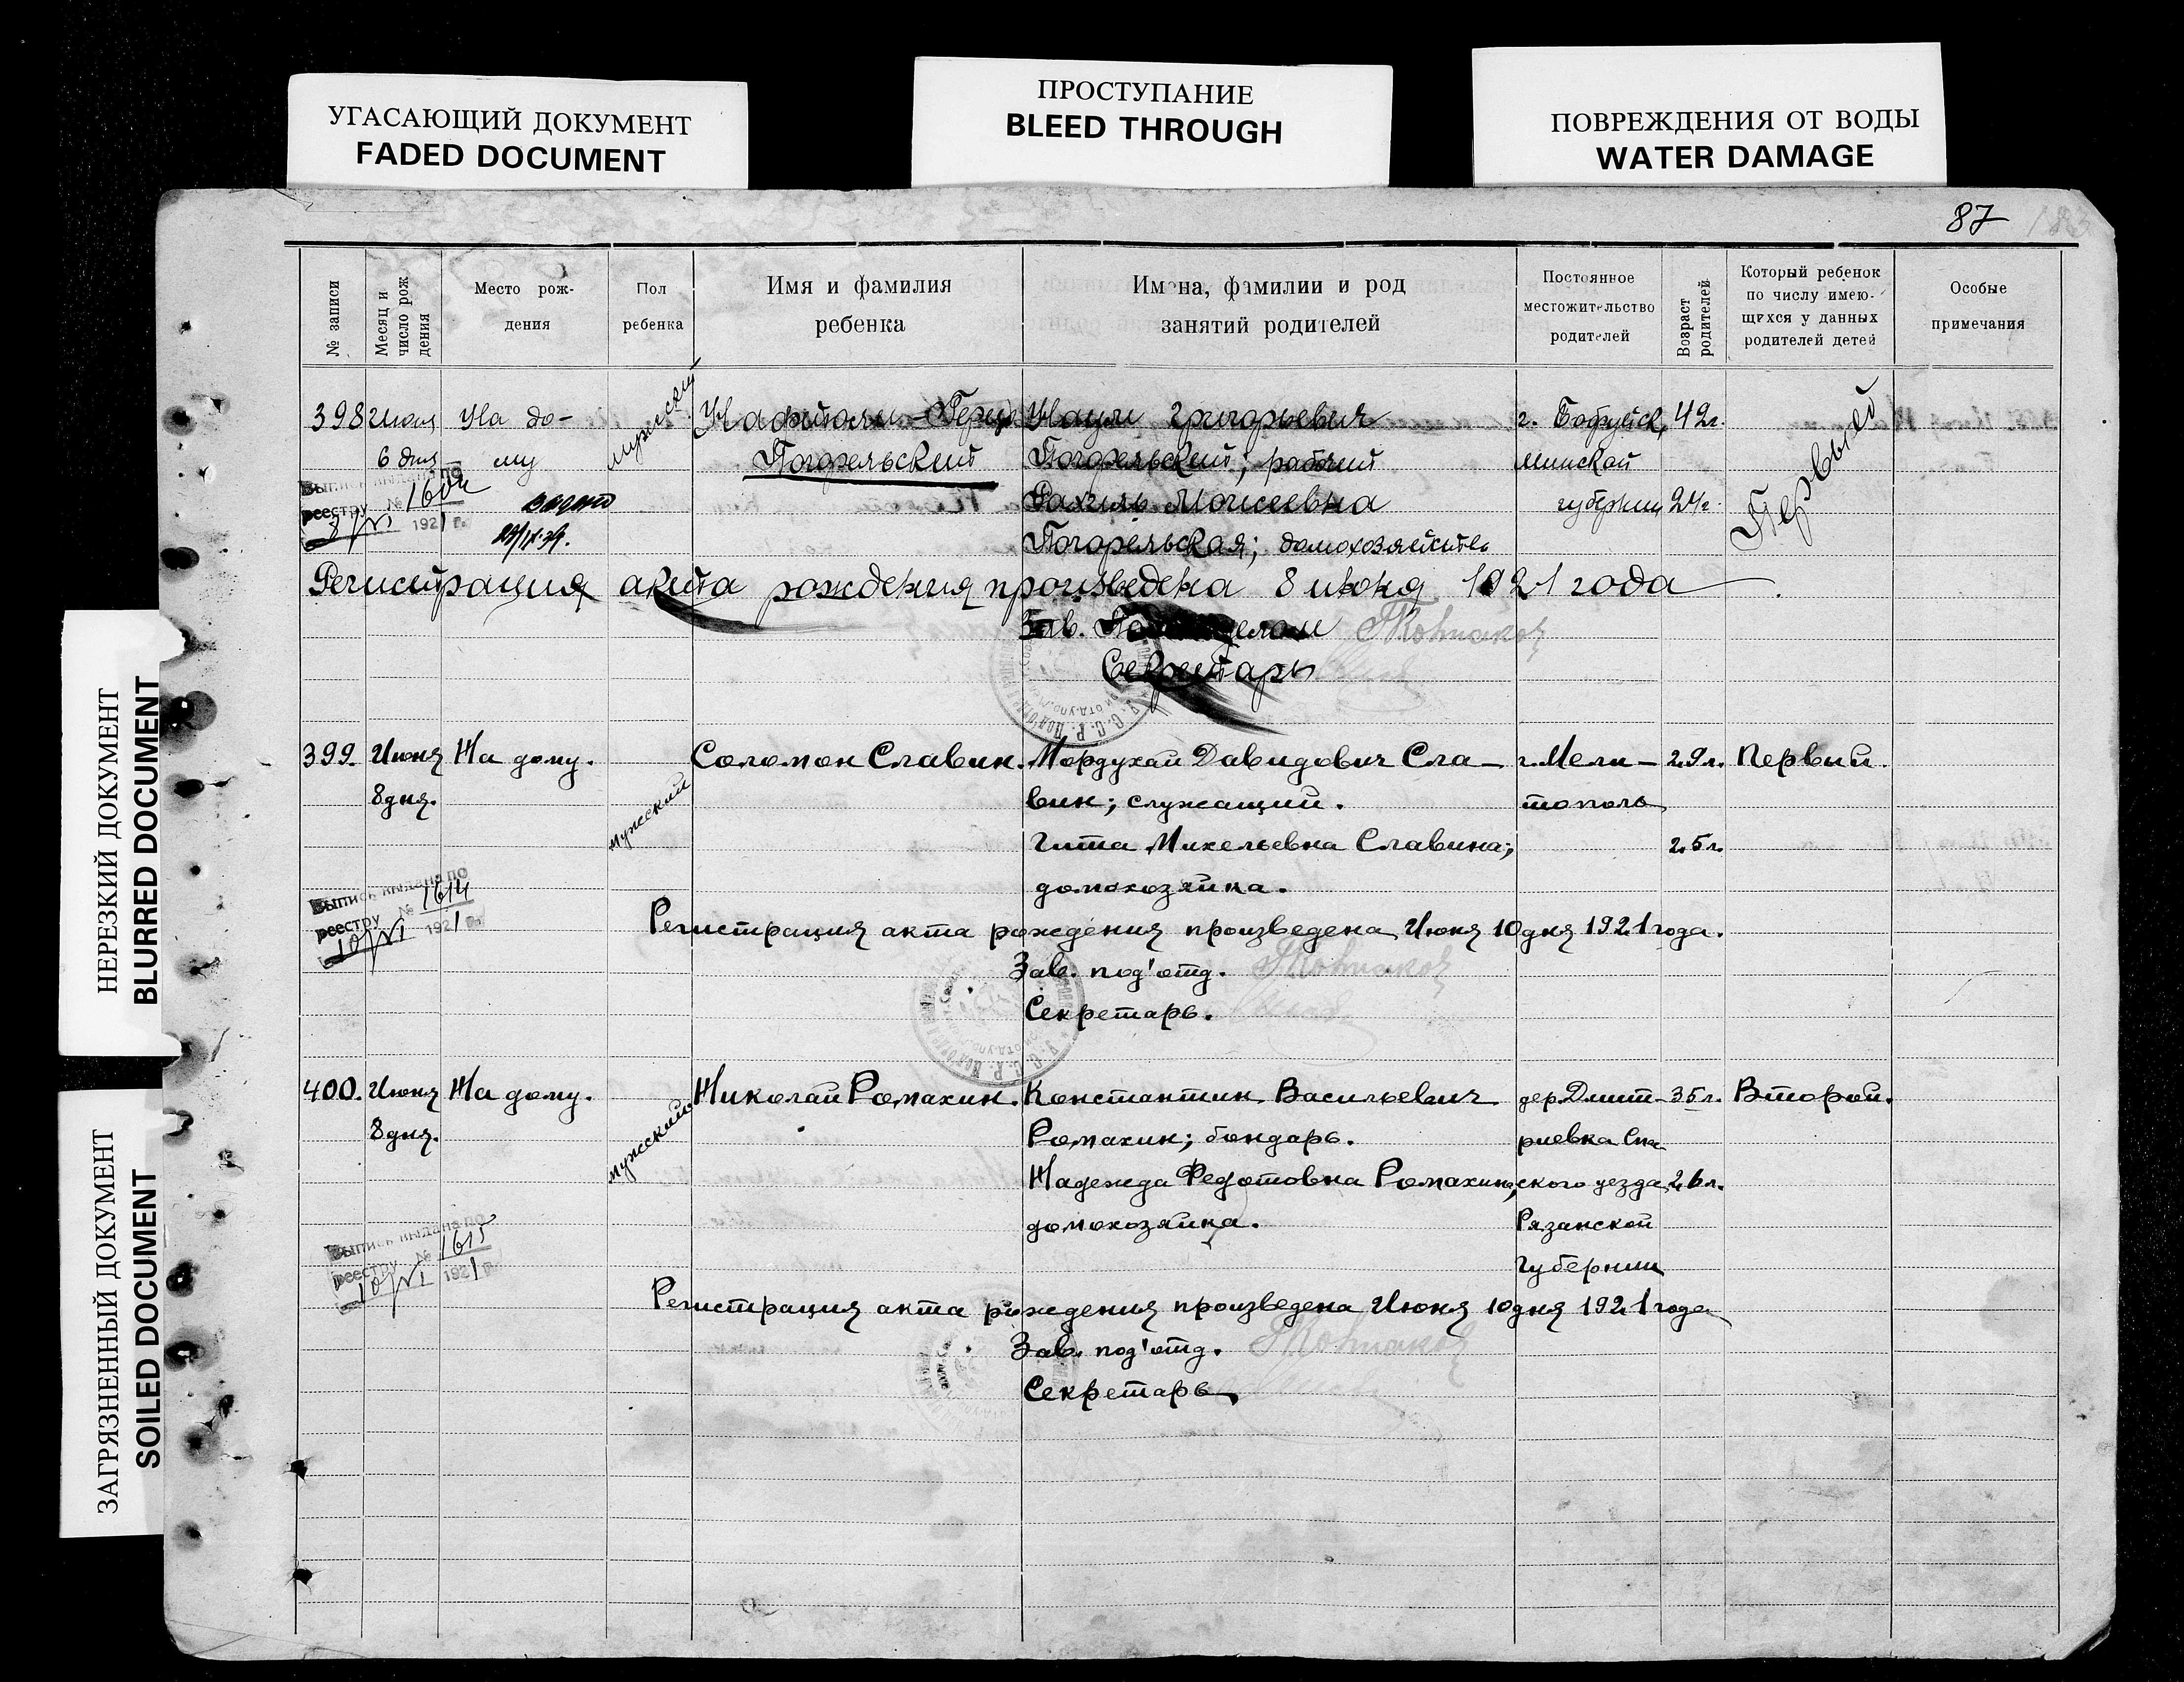 УГАСАЮЩИЙ ДОКУМЕНТ
FADED DOCUMENT
ПРОСТУПАНИЕ
BLEED THROUGH
ПОВРЕЖДЕНИЯ ОТ ВОДЫ
WATER DAMAGE
НЕРЕЗКИЙ ДОКУМЕНТ
BLURRED DOCUMENT
ЗАГРЯЗНЕННЫЙ ДОКУМЕНТ
SOILED DOCUMENT
87
№ записи
Месяц и число рож дения
Место рож-
дения
Пол
ребенка
Имя и фамилия
ребенка
Имена, фамилии и род
занятий родителей
Постоянное
местожительство
родителей
Возраст родителей
Который ребенок
по числу имею-
щихся у данных
родителей детей
Особые
примечания
398 Июня На до- мужский Нафтоли-Герц Наум Григорьевич г. Бобруйск, 42г. Первый
6 дня му Погорельский Погорельский; рабочий Минской
Рахиль Моисеевна губернии 24г.
Погорельская;
Выпись выдана по
реестру № 1604
8/VI 1921 г.
Регистрация акта рождения произведена 8 июня 1921 года
Зав.
Секретарь
399. Июня На дому. мужский Соломон Славин. Мордухай Давидович Сла- г. Мели- 29л. Первый.
8 дня. вин; служащий. тополь
Гита Михельевна Славина; 25л.
домохозяйка.
Выпись выдана по
реестру № 1614
10/VI 1921 г.
Регистрация акта рождения произведена Июня 10 дня 1921 года.
Зав. под'отд.
Секретарь.
400. Июня На дому. мужский Николай Ромахин. Константин Васильевич дер. Дмит- 35л. Второй.
8 дня. Ромахин; бондарь. риевка Спа
Надежда Федотовна Ромахина, ского уезда 26л.
домохозяйка. Рязанской
губернии
Выпись выдана по
реестру № 1615
10/VI 1921 г.
Регистрация акта рождения произведена Июня 10 дня 1921 года
Зав. под'отд.
Секретарь